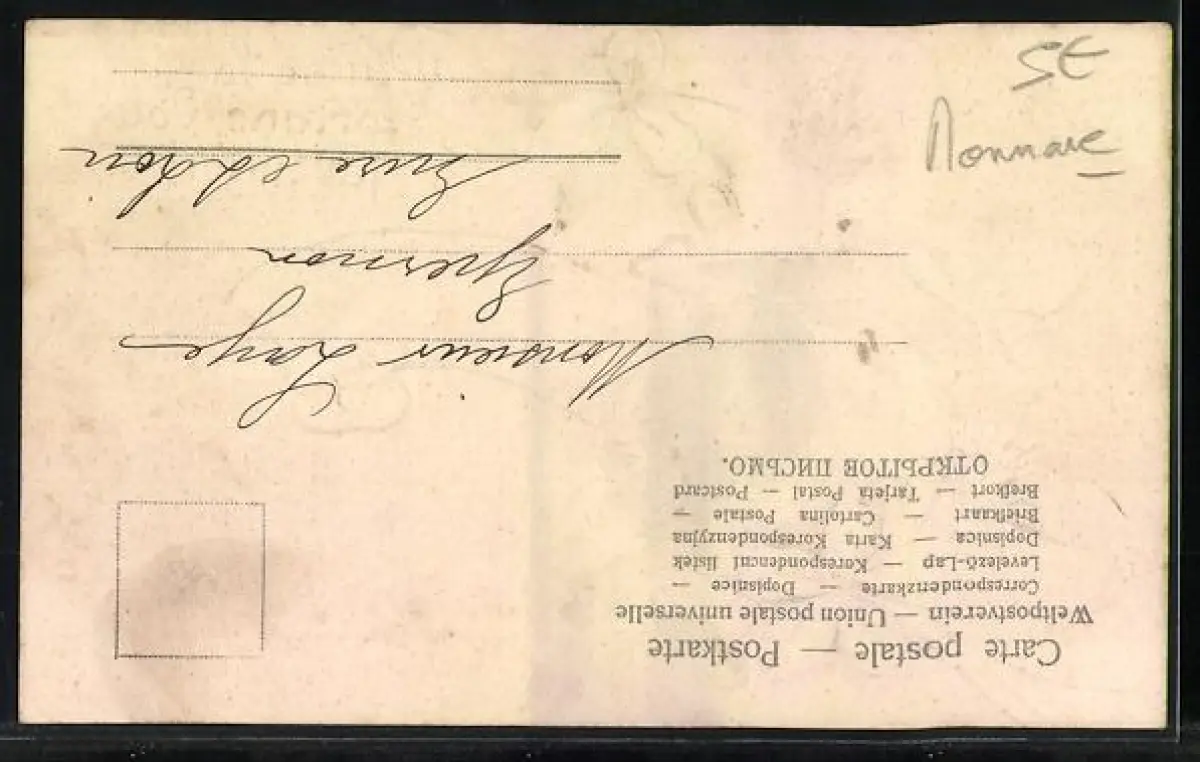 Carte postale — Postkarte
Weltpostverein — Union postale universelle
Correspondenzkarte — Dopisnice —
Levelező-Lap — Korespondencni listek
Dopisnica — Karta Korespondenzyjna
Briefkaart — Cartolina Postale —
Brefkort — Tarjeta Postal — Postcard
ОТКРЫТОВ ПИСЬМО.
Monsieur Laye
Epernon
Eure et Loir
5€
Monnaie